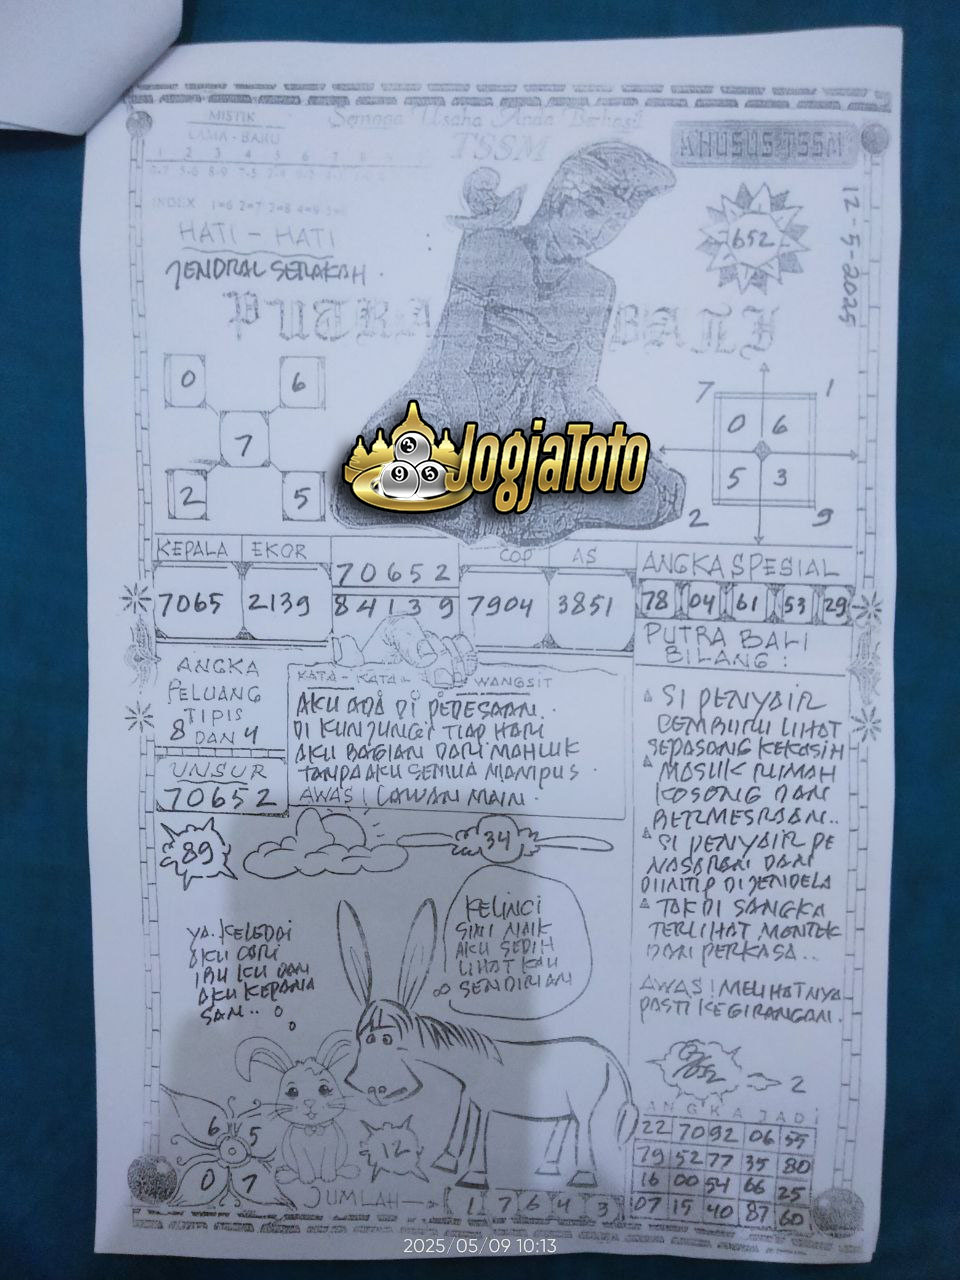 MISTIK
LAMA - BARU
1 2 3 4 5 6 7
Semoga Usaha Anda Berhasil
TSSM
KHUSUS TSSM
12-5-2025
INDEX 1=6 2=7 3=8 4=9 5=0
HATI - HATI
JENDRAL SERAKAH.
652
PUTRA BALI
0 6
7
2 5
7 1
0 6
5 3
2 9
3
9 5
JogjaToto
KEPALA EKOR
7065 2139
70652
84139
COP AS
7904 3851
ANGKA SPESIAL
78 04 61 53 29
ANGKA
PELUANG
TIPIS
8 DAN 4
UNSUR
70652
KATA - KATA WANGSIT
AKU ADA DI PEDESAAN.
DI KUNJUNGI TIAP HARI
AKU BAGIAN DARI MAHLUK
TANPA AKU SEMUA MAMPUS.
AWAS! LAWAN MAIN.
PUTRA BALI
BILANG:
SI PENYAIR
CEMBURU LIHAT
SEPASANG KEKASIH
MASUK RUMAH
KOSONG DAN
BERMESRAAN..
SI PENYAIR PE
NASARAN DAN
DIINTIP DI JENDELA
TAK DI SANGKA
TERLIHAT MONTEK
DAN PERKASA..
AWAS! MELIHATNYA
PASTI KEGIRANGAN.
89
34
YA. KELEDAI
AKU CARI
IBU KU DAN
AKU KEPANA
SAN..
KELINCI
SINI NAIK
AKU SEDIH
LIHAT KAU
SENDIRIAN
2
ANGKA JADI
22 70 92 06 55
79 52 77 35 80
16 00 54 66 25
07 15 40 87 60
6 5
0 7
12
JUMLAH 1 7 6 4 3
2025/05/09 10:13